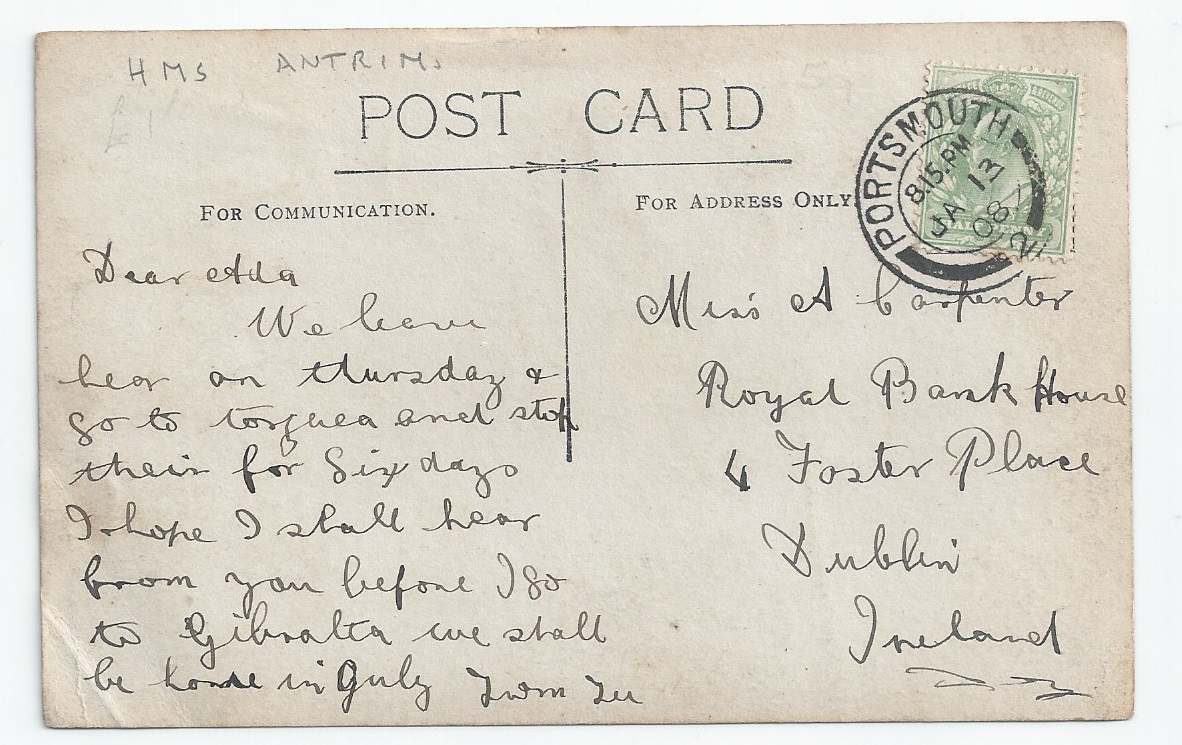 HMS ANTRIM.
£1
POST CARD
FOR COMMUNICATION.
FOR ADDRESS ONLY.
PORTSMOUTH
8.15.PM
JA 13
08
Dear Ada
We leave
hear on thursday &
go to torquea and stop
their for Six days
I hope I shall hear
from you before I go
to Gibralta we shall
be home in July
Miss A Carpenter
Royal Bank House
4 Foster Place
Dublin
Ireland